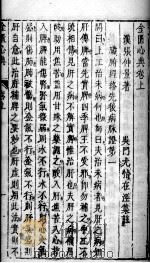 金匱心典卷上
漢張仲景著　吳門尤怡在涇集註
臟腑經絡先後病脈證第一
問曰上工治未病何也師曰夫治未病者見肝之病知
肝傳脾當先實脾四季脾王不受邪即勿補之中工不
曉相傳見肝之病不解實脾惟治肝也夫肝之病補用酸
助用焦苦益用甘味之藥調之酸入肝焦苦入心甘入
脾脾能傷腎腎氣微弱則水不行水不行則心火氣盛
則傷肺肺被傷則金氣不行金氣不行則肝氣盛則
肝自愈此治肝補脾之要妙也肝虛則用此法實則不